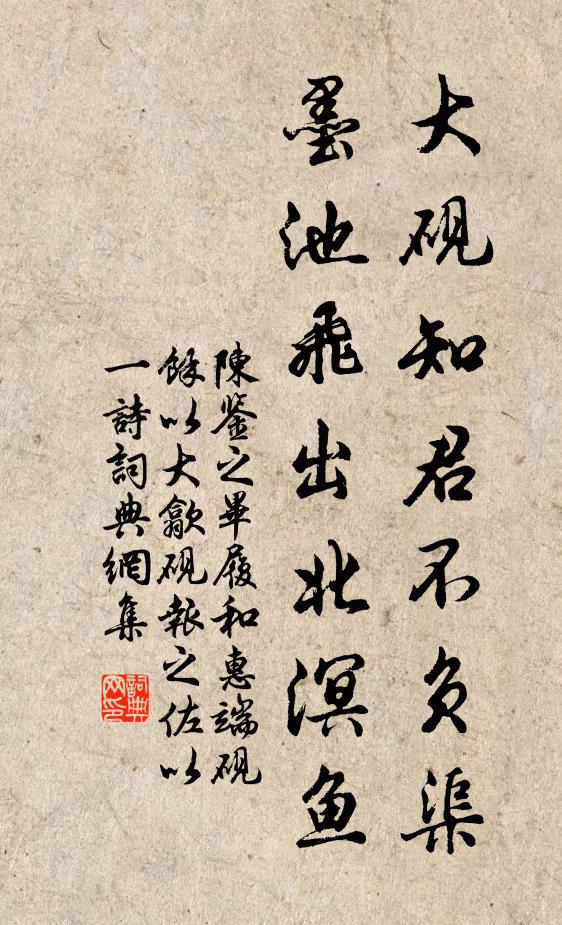 大砚知君不負渠
墨池飛出北溟魚
陳鉴之畢履和惠端砚
餘以大歙砚報之佐以
一詩詞典網集
詞典
网印